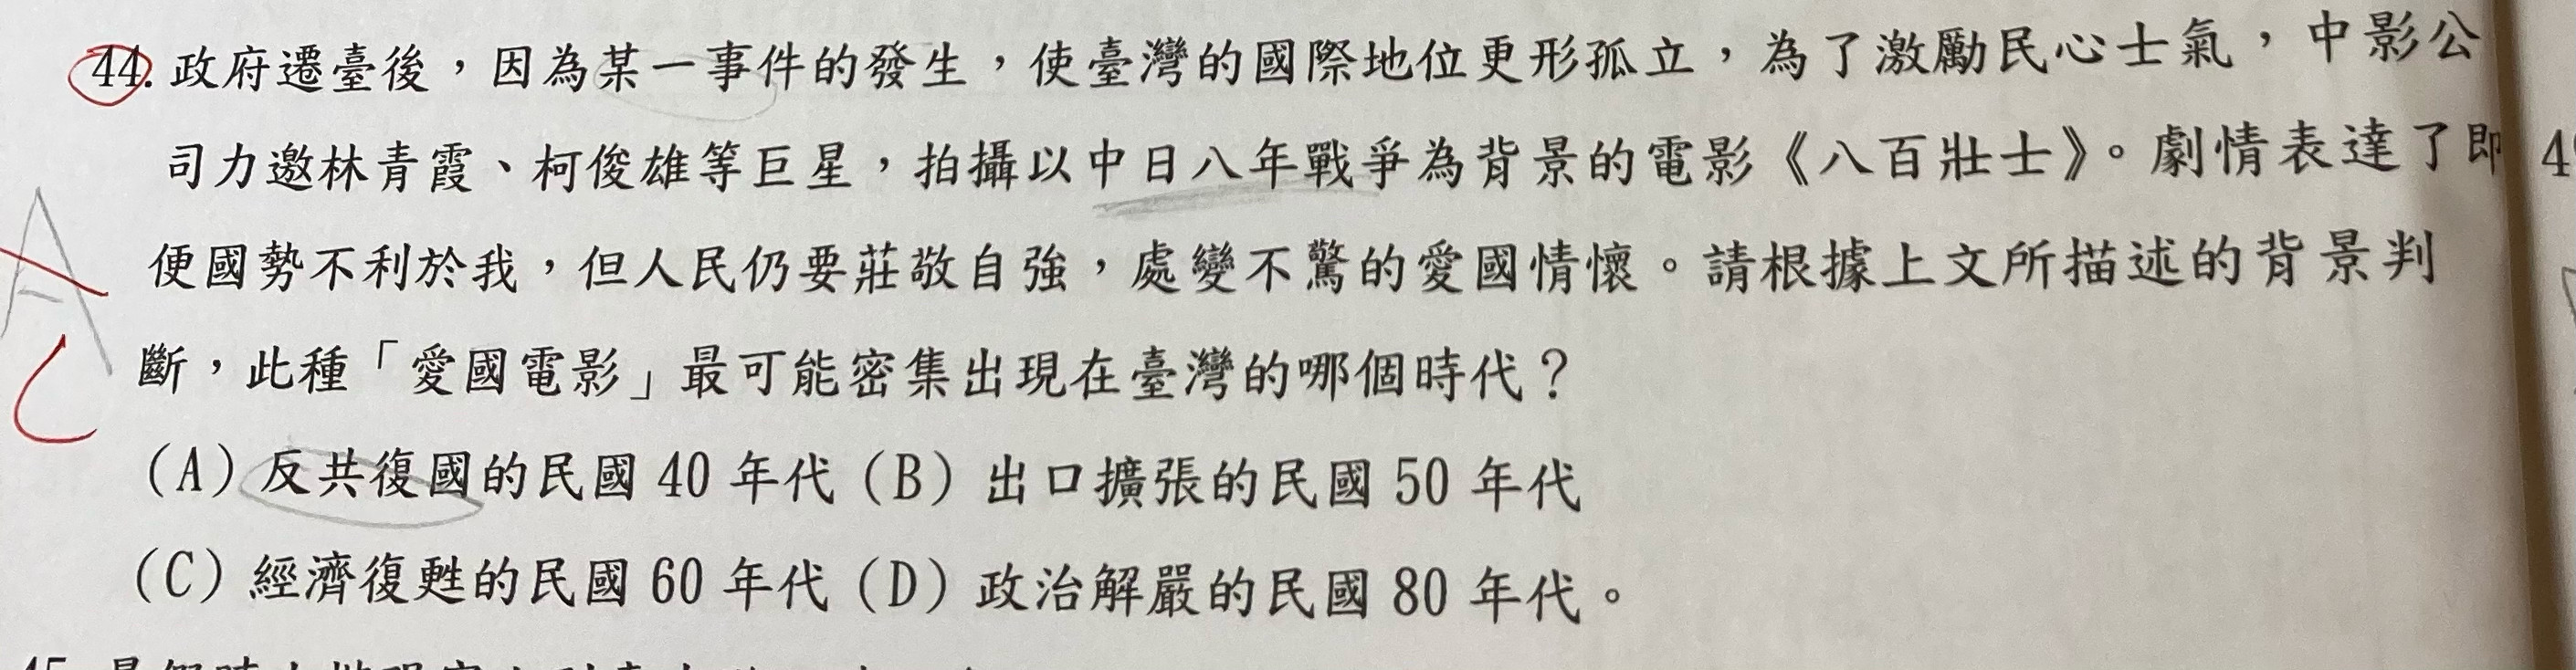 44. 政府遷臺後，因為某一事件的發生，使臺灣的國際地位更形孤立，為了激勵民心士氣，中影公
司力邀林青霞、柯俊雄等巨星，拍攝以中日八年戰爭為背景的電影《八百壯士》。劇情表達了即
便國勢不利於我，但人民仍要莊敬自強，處變不驚的愛國情懷。請根據上文所描述的背景判
斷，此種「愛國電影」最可能密集出現在臺灣的哪個時代？
(A) 反共復國的民國 40 年代 (B) 出口擴張的民國 50 年代
(C) 經濟復甦的民國 60 年代 (D) 政治解嚴的民國 80 年代。
A
C